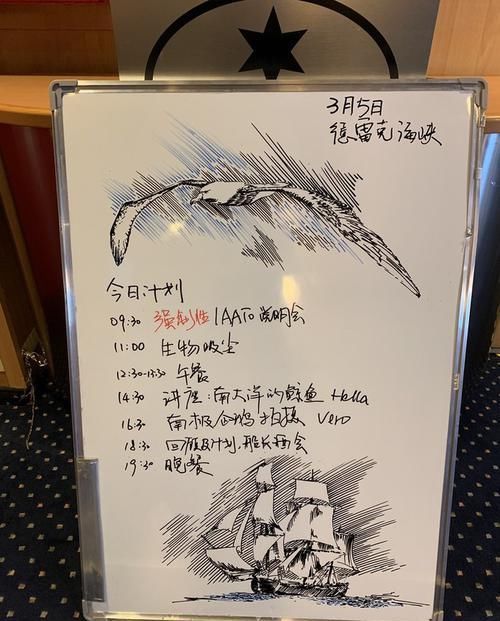 3月5日
德雷克海峡
今日计划
09:30 强制性 IAATO 说明会
11:00 生物吸尘
12:30-13:30 午餐
14:30 讲座:南大洋的鲸鱼 Hella
16:30 南极企鹅 Vero
18:30 回顾及计划,船长酒会
19:30 晚餐